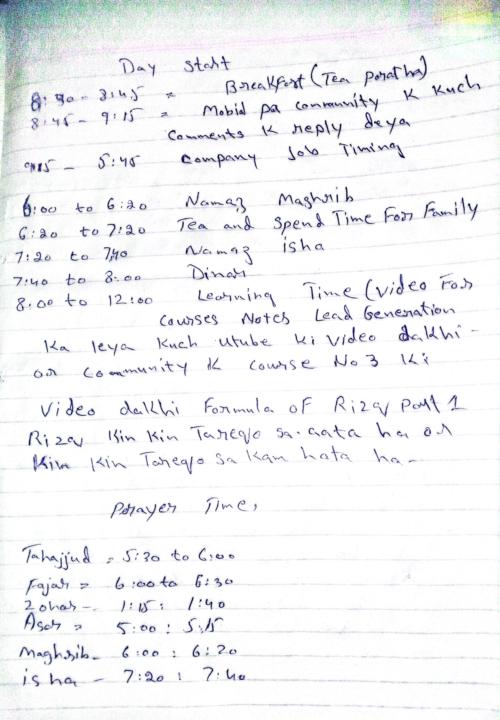 Day start
8:30 - 8:45 = Breakfast (Tea poratha)
8:45 - 9:15 = Mobid pa community K Kuch
Comments K reply deya
9:15 - 5:45 Company Job Timing
6:00 to 6:20 Namaz Maghrib
6:20 to 7:20 Tea and Spend Time For Family
7:20 to 7:40 Namaz isha
7:40 to 8:00 Dinar
8:00 to 12:00 Learning Time (Video For
Courses Notes Lead Generation
Ka leya Kuch Utube ki video dakhi -
or Community K course No 3 Ki
Video dakhi Formula of Rizq Part 1
Rizq Kin Kin Tareqo sa aata ha or
Kin Kin Tareqo sa Kam hota ha -
Prayer Time,
Tahajjud = 5:30 to 6:00
Fajar = 6:00 to 6:30
Zohar - 1:15 : 1:40
Asar = 5:00 : 5:15
Maghrib - 6:00 : 6:20
isha - 7:20 : 7:40